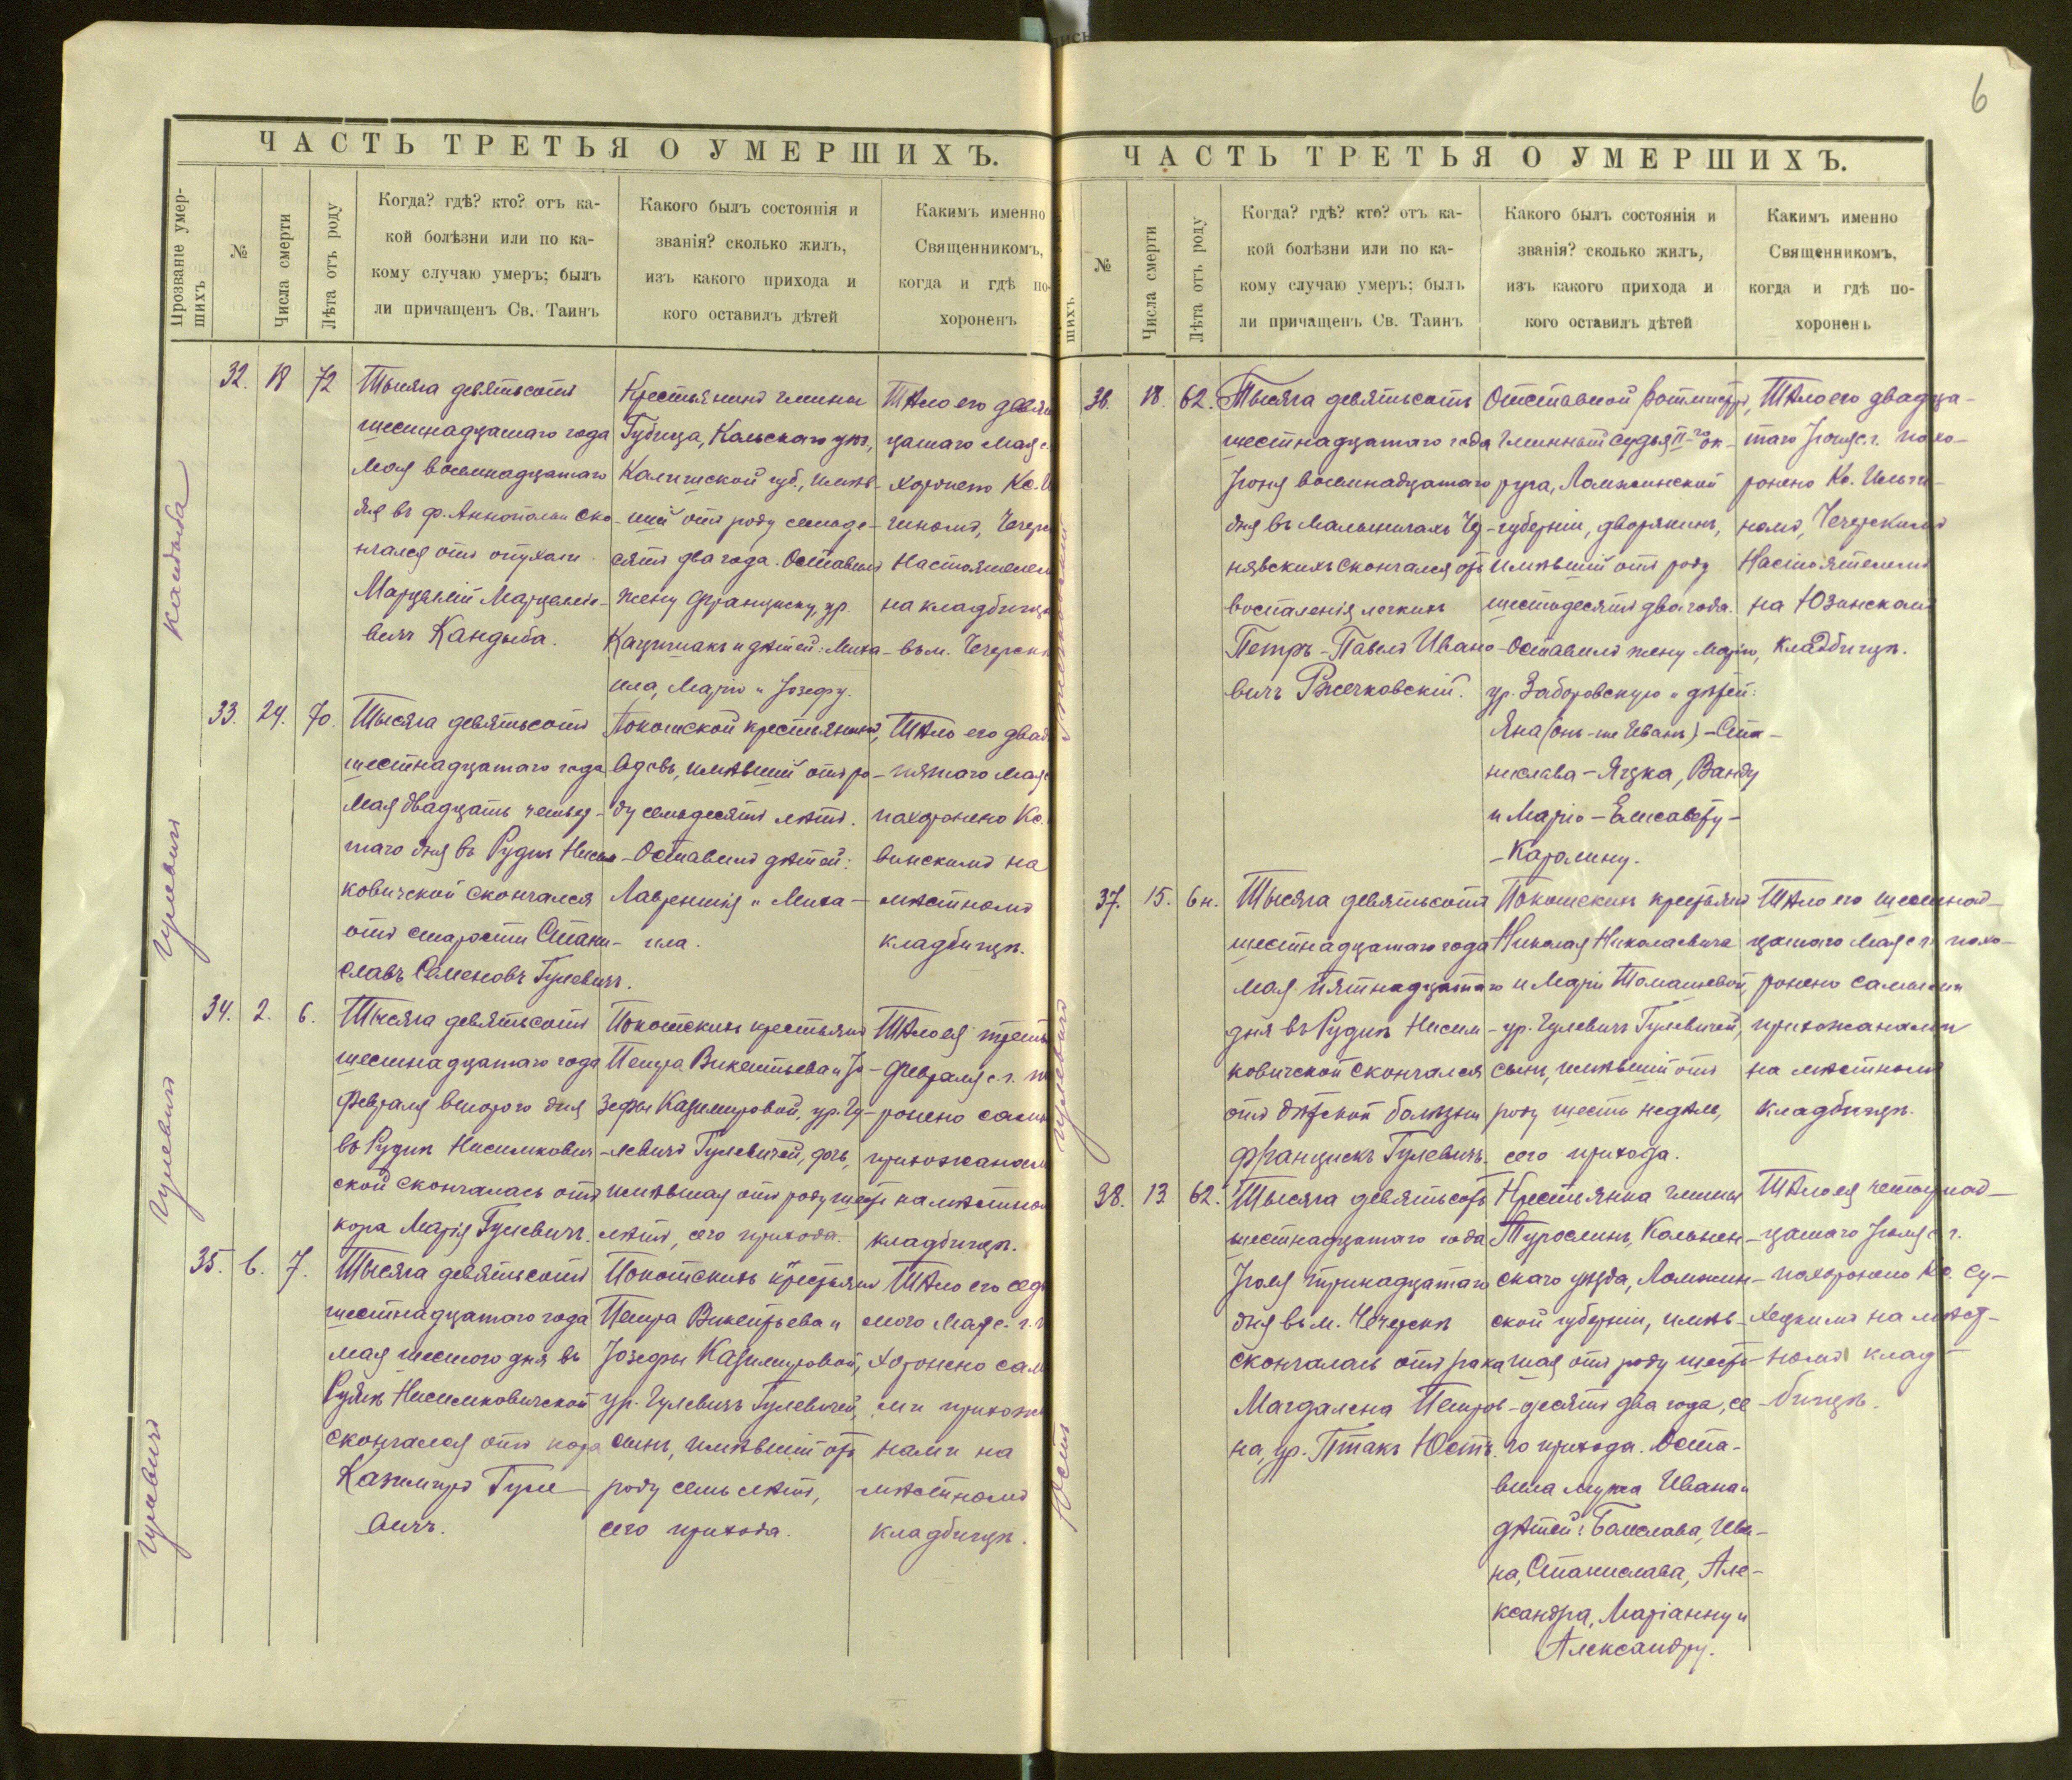 6
ЧАСТЬ ТРЕТЬЯ О УМЕРШИХЪ.
Прозваніе умер-
шихъ
№
Числа смерти
Лѣта отъ роду
Когда? гдѣ? кто? отъ ка-
кой болѣзни или по ка-
кому случаю умеръ; былъ
ли причащенъ Св. Таинъ
Какого былъ состоянія и
званія? сколько жилъ,
изъ какого прихода и
кого оставилъ дѣтей
Какимъ именно
Священникомъ,
когда и гдѣ по-
хороненъ
Кандыба
32. 18 72
Тысяча девятьсотъ
шестнадцатаго года
Мая восемнадцатаго
дня въ ф. Аннополи ско-
нчался отъ опухоли
Марцелій Марцеліе-
вичъ Кандыба.
Крестьянинъ гмины
Губица, Кольскаго уѣз.,
Калишской губ., имѣв-
шій отъ роду семьде-
сятъ два года. Оставилъ
жену Францишку, ур.
и дѣтей: Миха-
ила, Марію и Іозефу.
Тѣло его двадц
цатаго Мая с.
хоронено Кс.
Настоятелем
на кладбищѣ
въ м. Чечерск
Гулевичъ
33. 24. 70.
Тысяча девятьсотъ
шестнадцатаго года
Мая двадцать четвер-
таго дня въ Рудни Нисим-
ковичской скончался
отъ старости Стани-
славъ Семеновъ Гулевичъ.
Покотской крестьянинъ,
вдовъ, имѣвшій отъ ро-
ду семьдесятъ лѣтъ.
Оставилъ дѣтей:
Лаврентія и Миха-
ила.
Тѣло его двад
пятаго Мая
похоронено Кс.
винскимъ на
мѣстномъ
кладбищѣ.
Гулевичъ
34. 2. 6.
Тысяча девятьсотъ
шестнадцатаго года
Февраля второго дня
въ Рудни Нисимкович-
ской скончалась отъ
кора Марія Гулевичъ.
Покотскихъ крестьянъ
Петра Викентьева и Іо-
зефы Казимировой, ур. Гу-
левичъ Гулевичей, дочь,
имѣвшая отъ роду шесть
лѣтъ, сего прихода.
Тѣло ея треть
Февраля с. г. п
ронено сами
прихожанам
на мѣстном
кладбищѣ.
Гулевичъ
35. 6. 7.
Тысяча девятьсотъ
шестнадцатаго года
мая шестого дня въ
Рудни Нисимковичской
скончался отъ кора
Казимиръ Гуле-
вичъ.
Покотскихъ крестьянъ
Петра Викентьева и
Іозефы Казимировой,
ур. Гулевичъ Гулевичей,
сынъ, имѣвшій отъ
роду семь лѣтъ,
сего прихода.
Тѣло его седь
мого Мая с. г. п
хоронено сам
ми прихожа
нами на
мѣстномъ
кладбищѣ.
ЧАСТЬ ТРЕТЬЯ О УМЕРШИХЪ.
шихъ
№
Числа смерти
Лѣта отъ роду
Когда? гдѣ? кто? отъ ка-
кой болѣзни или по ка-
кому случаю умеръ; былъ
ли причащенъ Св. Таинъ
Какого былъ состоянія и
званія? сколько жилъ,
изъ какого прихода и
кого оставилъ дѣтей
Какимъ именно
Священникомъ,
когда и гдѣ по-
хороненъ
36. 18. 62.
Тысяча девятьсотъ
шестнадцатаго года
Іюня восемнадцатаго
дня въ Малыничахъ Чер-
нявскихъ скончался отъ
воспаленія легкихъ
Петръ-Павелъ Ивано-
вичъ Ржечковскій.
Отставной ротмистръ,
гминный судья II-го ок-
руга, Ломжинской
губерніи, дворянинъ,
имѣвшій отъ роду
шестьдесятъ два года.
Оставилъ жену Марію,
ур. Заборовскую и дѣтей:
Яна (онъ-же Иванъ)-Ста-
нислава-Яцка, Ванду
и Марію-Елисавету-
-Каролину.
Тѣло его двадца-
таго Іюня с. г. похо-
ронено Кс.
номъ, Чечерскимъ
Настоятелемъ
на Юзинскомъ
кладбищѣ.
Гулевичъ
37. 15. 6н.
Тысяча девятьсотъ
шестнадцатаго года
мая пятнадцатаго
дня въ Рудни Нисим-
ковичской скончался
отъ дѣтской болѣзни
Францискъ Гулевичъ.
Покотскихъ крестьянъ
Николая Николаевича
и Маріи Томашевой,
ур. Гулевичъ Гулевичей,
сынъ, имѣвшій отъ
роду шесть недѣль,
сего прихода.
Тѣло его шестнад-
цатаго Мая с. г. похо-
ронено самими
прихожанами
на мѣстномъ
кладбищѣ.
Юстъ
38. 13 62.
Тысяча девятьсотъ
шестнадцатаго года
Іюля тринадцатаго
дня въ м. Чечерскѣ
скончалась отъ рака
Магдалена Петров-
на, ур. Птакъ Юстъ.
Крестьянка гмины
Турослинъ, Кольнен-
скаго уѣзда, Ломжин-
ской губерніи, имѣв-
шая отъ роду шесть-
десятъ два года, се-
го прихода. Оста-
вила мужа Ивана и
дѣтей: Болеслава, Ива-
на, Станислава, Але-
ксандра, Маріанну и
Александру.
Тѣло ея четырнад-
цатаго Іюля с. г.
похоронено Кс. Су-
хецкимъ на мѣст-
номъ клад-
бищѣ.